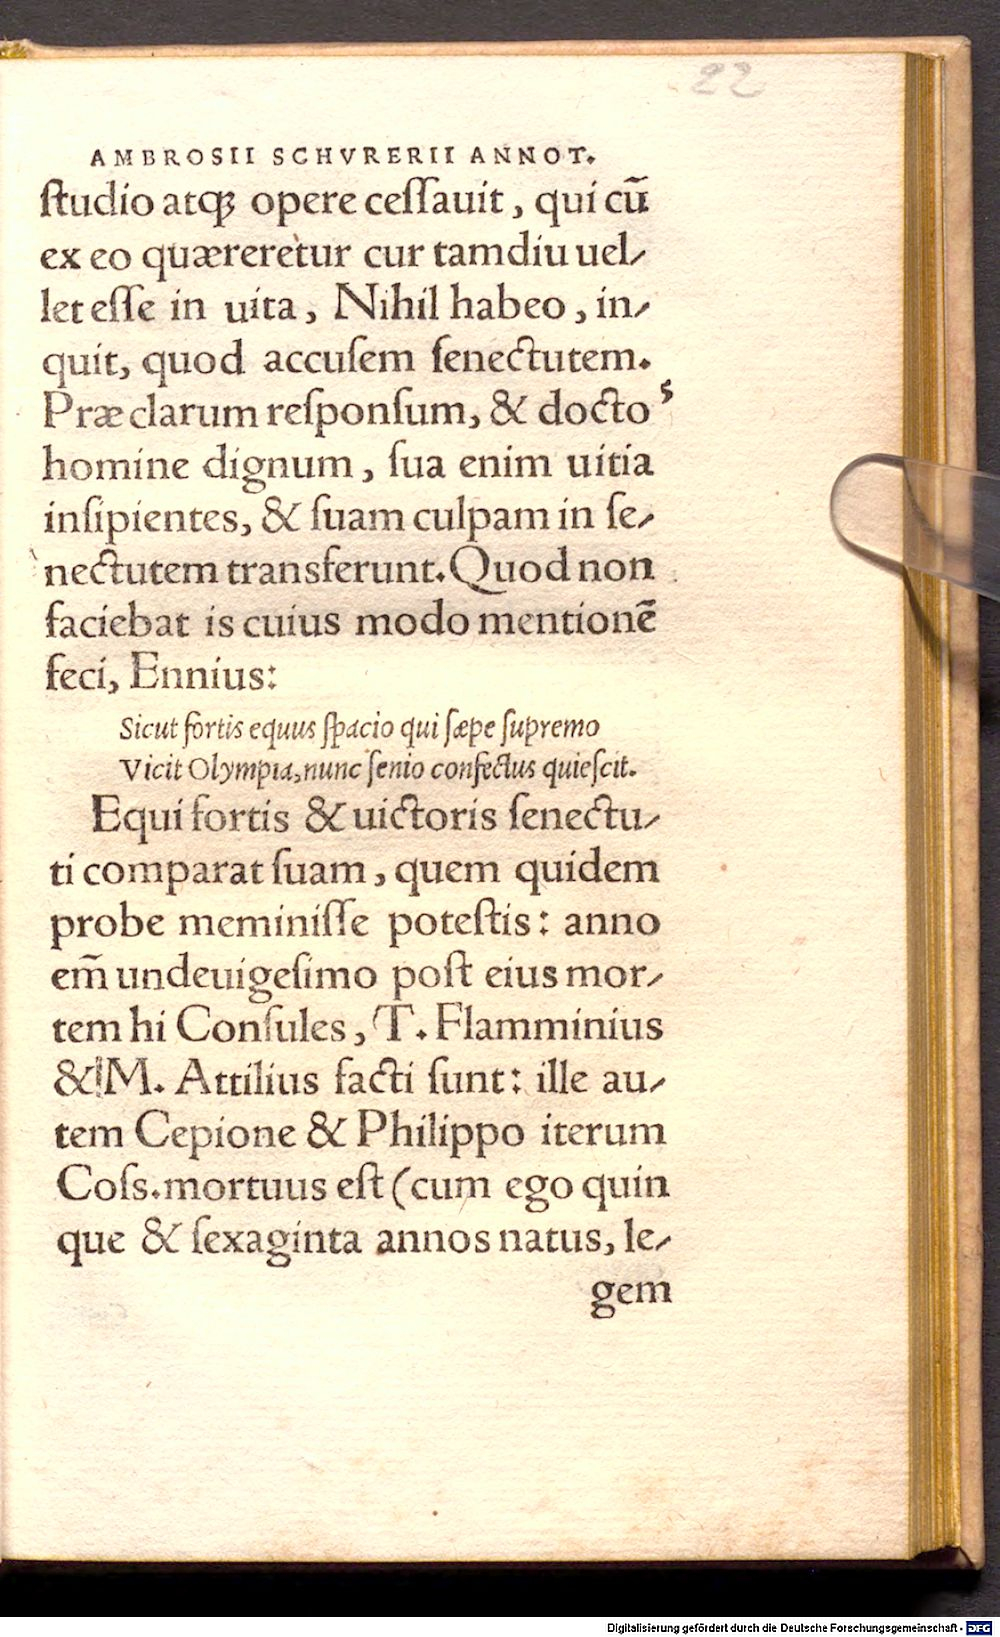 22
AMBROSII SCHVRERII ANNOT.
ſtudio atqꝫ opere ceſſauit, qui cū
ex eo quæreretur cur tamdiu uel⸗
let eſſe in uita, Nihil habeo, in⸗
quit, quod accuſem ſenectutem.
Præclarum reſponſum, & docto s
homine dignum, ſua enim uitia
inſipientes, & ſuam culpam in ſe⸗
nectutem transferunt. Quod non
faciebat is cuius modo mentionē
feci, Ennius:
Sicut fortis equus ſpacio qui ſæpe ſupremo
Vicit Olympia, nunc ſenio confectus quieſcit.
Equi fortis & uictoris ſenectu⸗
ti comparat ſuam, quem quidem
probe meminiſſe poteſtis: anno
em̄ undeuigeſimo poſt eius mor⸗
tem hi Conſules, T. Flamminius
& M. Attilius facti ſunt: ille au⸗
tem Cepione & Philippo iterum
Coſs. mortuus eſt (cum ego quin
que & ſexaginta annos natus, le⸗
gem
Digitalisierung gefördert durch die Deutsche Forschungsgemeinschaft - DFG